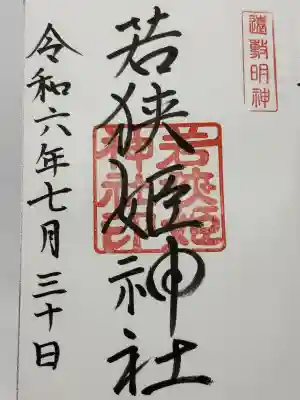 遠敷明神
若狭姫神社
若狭姫神社印
令和六年七月三十日